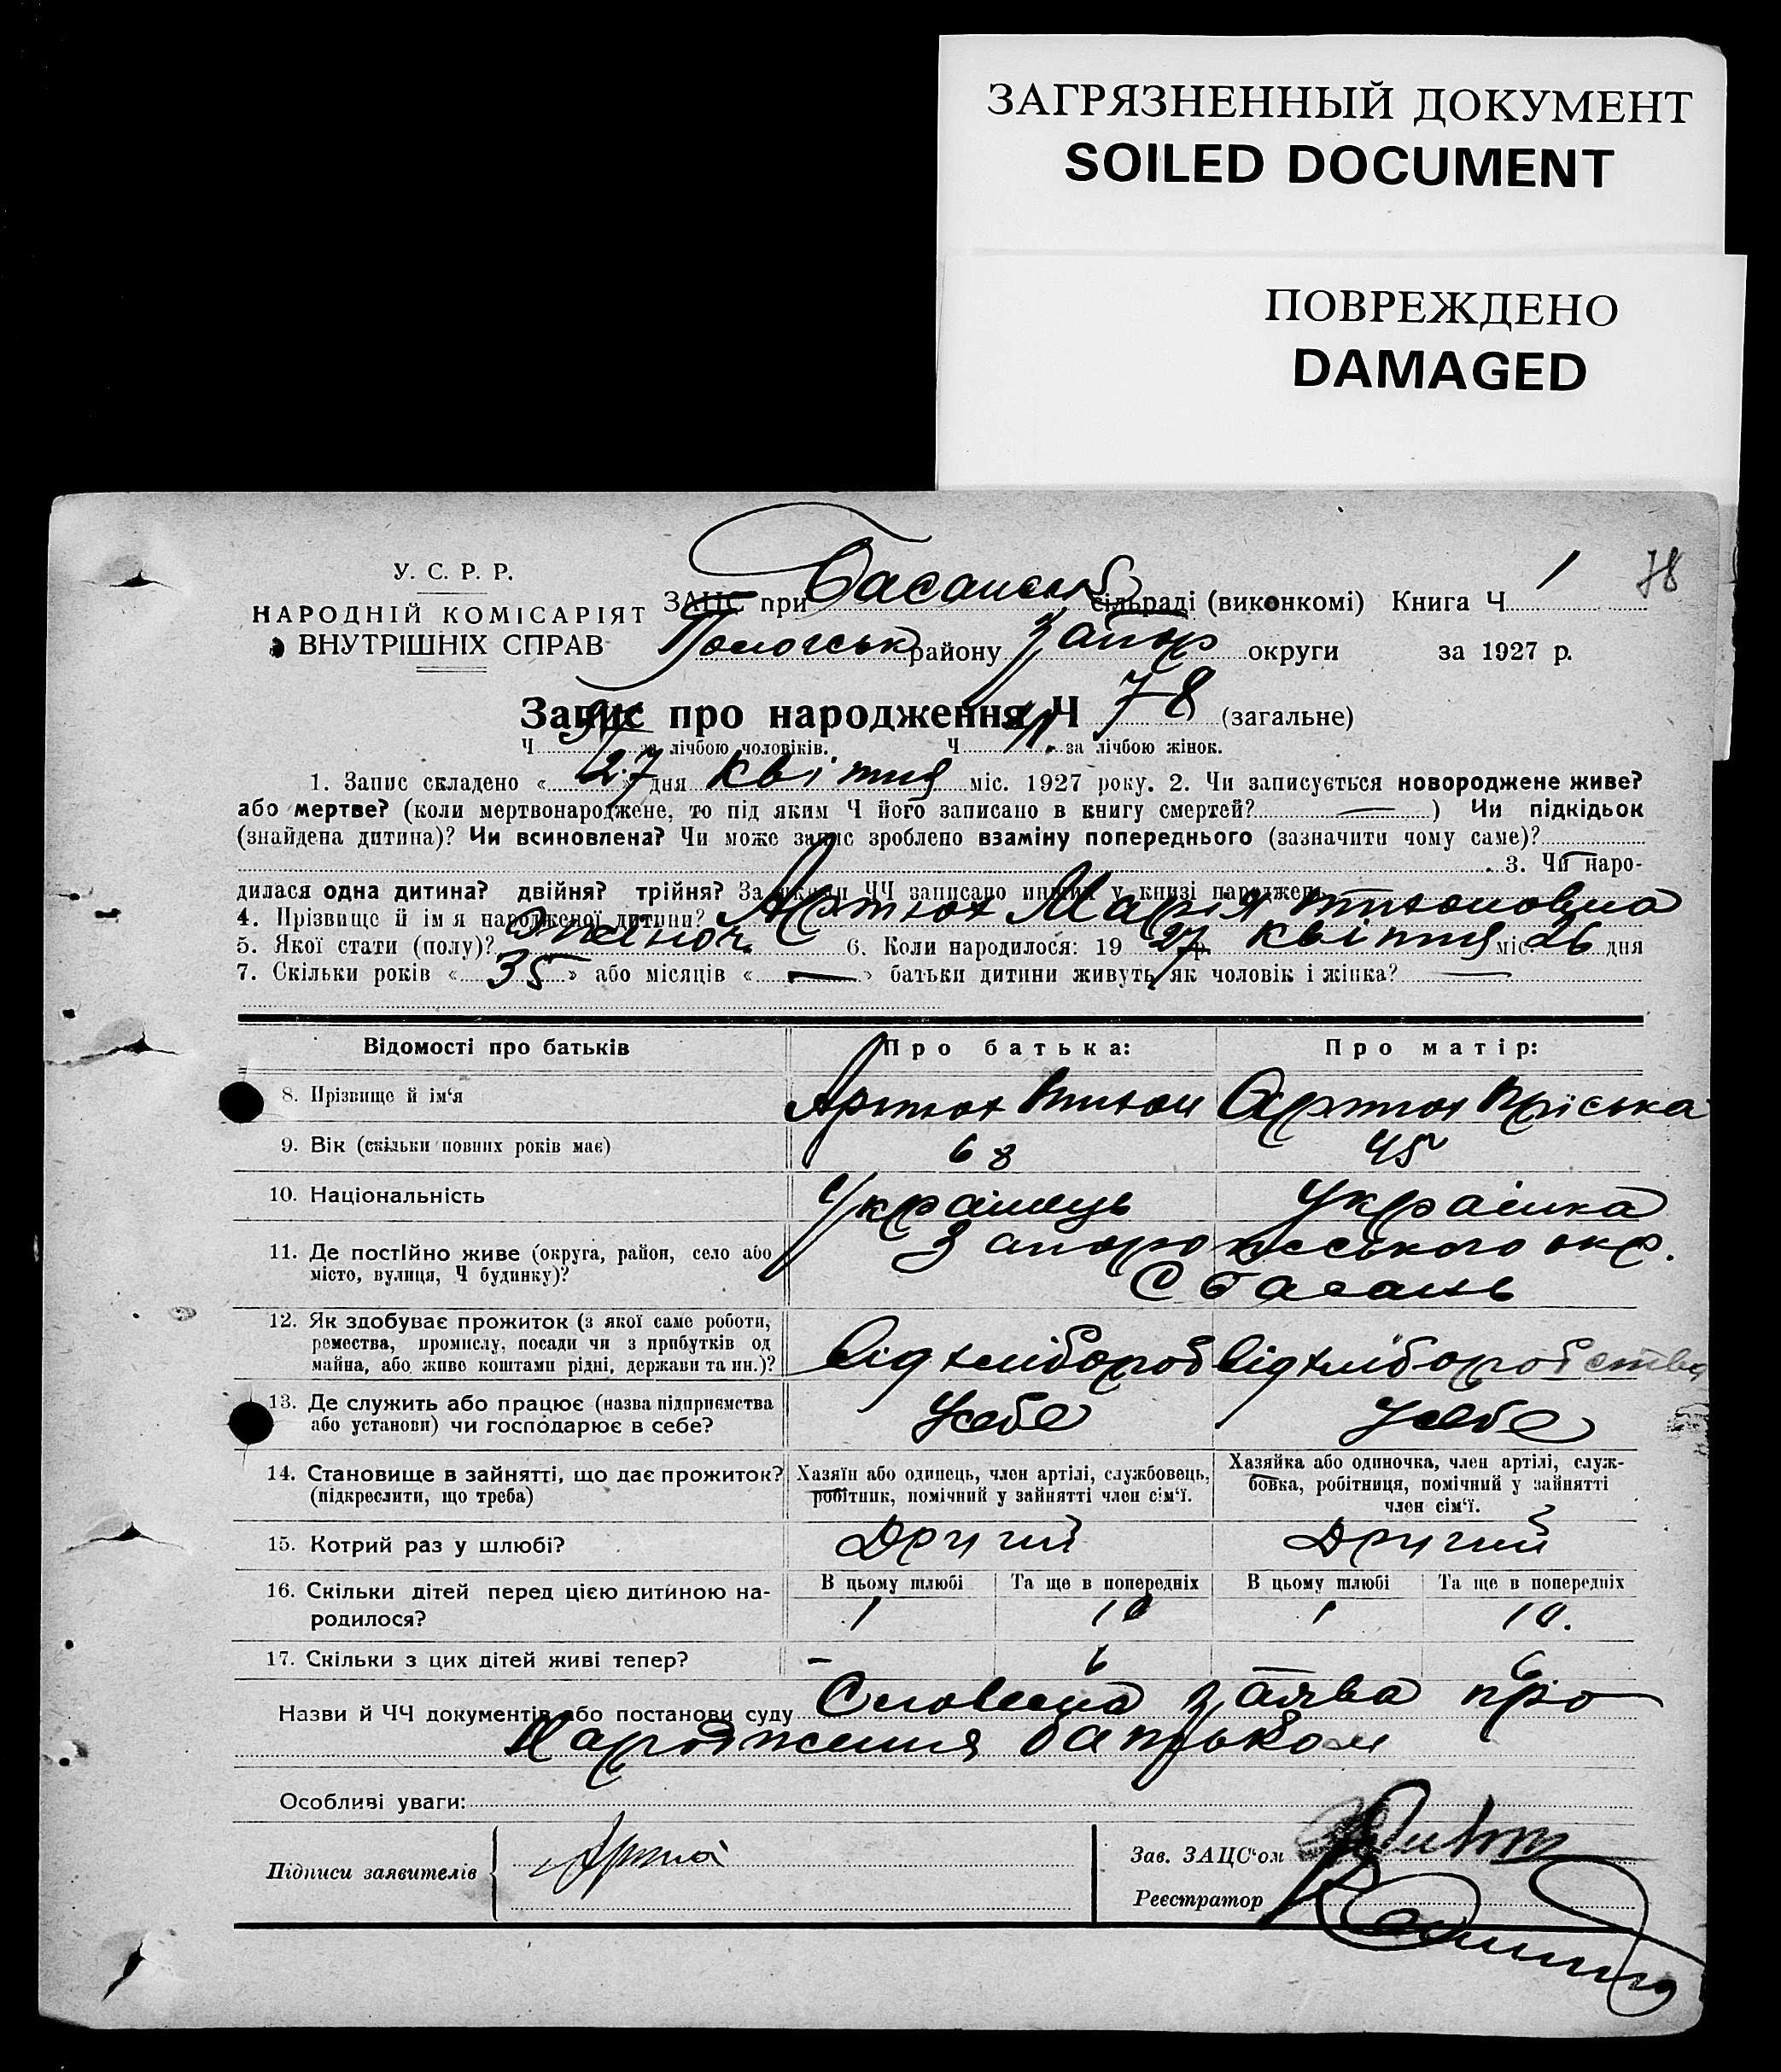 ЗАГРЯЗНЕННЫЙ ДОКУМЕНТ
SOILED DOCUMENT
ПОВРЕЖДЕНО
DAMAGED
78
У. С. Р. Р.
НАРОДНІЙ КОМІСАРІЯТ
ВНУТРІШНІХ СПРАВ
ЗАЦС при Басанськ сільраді (виконкомі) Книга Ч 1
Пологськ району Запор округи за 1927 р.
Запис про народження Ч 78 (загальне)
Ч за лічбою чоловіків. Ч за лічбою жінок.
1. Запис складено « 27 » дня квітня міс. 1927 року. 2. Чи записується новороджене живе?
або мертве? (коли мертвонароджене, то під яким Ч його записано в книгу смертей? — ) Чи підкідьок
(знайдена дитина)? Чи всиновлена? Чи може запис зроблено взаміну попереднього (зазначити чому саме)?
3. Чи наро-
дилася одна дитина? двійня? трійня? За якими ЧЧ записано инших у книзі народжень
4. Прізвище й ім я народженої дитини? Артюх Марія Тихоновна
5. Якої стати (полу)? Жіноч. 6. Коли народилося: 19 27 р. квітня міс. 26 дня
7. Скільки років « 35 » або місяців « — » батьки дитини живуть як чоловік і жінка? —
Відомості про батьків Про батька: Про матір:
8. Прізвище й ім'я Артюх Тихон Артюх Пріська
9. Вік (скільки повних років має) 68 45
10. Національність Українець Українка
11. Де постІйно живе (округа, район, село або
місто, вулиця, Ч будинку)?
Запорожського окр.
С Басань
12. Як здобуває прожиток (з якої саме роботи,
ремества, промислу, посади чи з прибутків од
майна, або живе коштами рідні, держави та ин.)?
Від хлібороб Від хліборобства
13. Де служить або працює (назва підприємства
або установи) чи господарює в себе?
У себе У себе
14. Становище в зайнятті, що дає прожиток?
(підкреслити, що треба)
Хазяїн або одинець, член артілі, службовець,
робітник, помічний у зайнятті член сім'ї.
Хазяйка або одиночка, член артілі, служ-
бовка, робітниця, помічний у зайнятті
член сім'ї.
15. Котрий раз у шлюбі? Другий Другий
16. Скільки дітей перед цією дитиною на-
родилося?
В цьому шлюбі Та ще в попередніх В цьому шлюбі Та ще в попередніх
1 10 1 10.
17. Скільки з цих дітей живі тепер? – 6 6
Назви й ЧЧ документів або постанови суду Словесна заява про
народження батьком
Особливі уваги:
Підписи заявителів Артюх
Зав. ЗАЦС'ом
Реєстратор